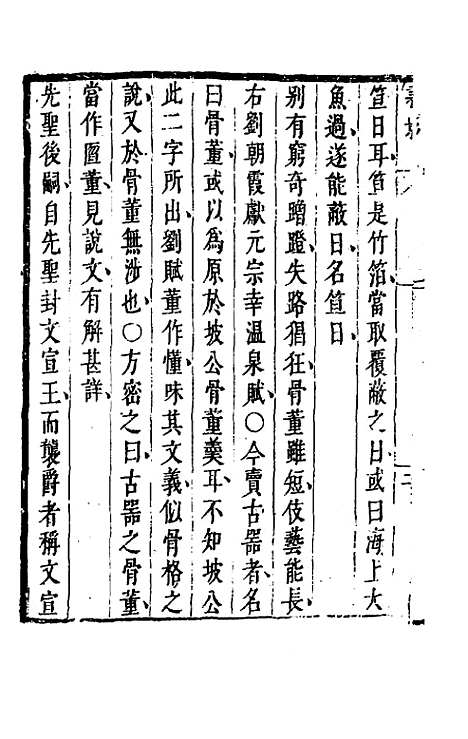 笪日耳笪是竹箔當取覆蔽之日或曰海上大
魚過遂能蔽日名笪日
别有窮奇蹭蹬失路猖狂骨董雖短伎藝能長
右劉朝霞獻元宗幸溫泉賦〇今賣古器者名
曰骨董或以為原於坡公骨董羹耳不知坡公
此二字所出劉賦董作懂味其文義似骨格之
說又於骨董無涉也〇方密之曰古器之骨董
當作匫董見說文有解甚詳
先聖後嗣自先聖封文宣王而襲爵者稱文宣